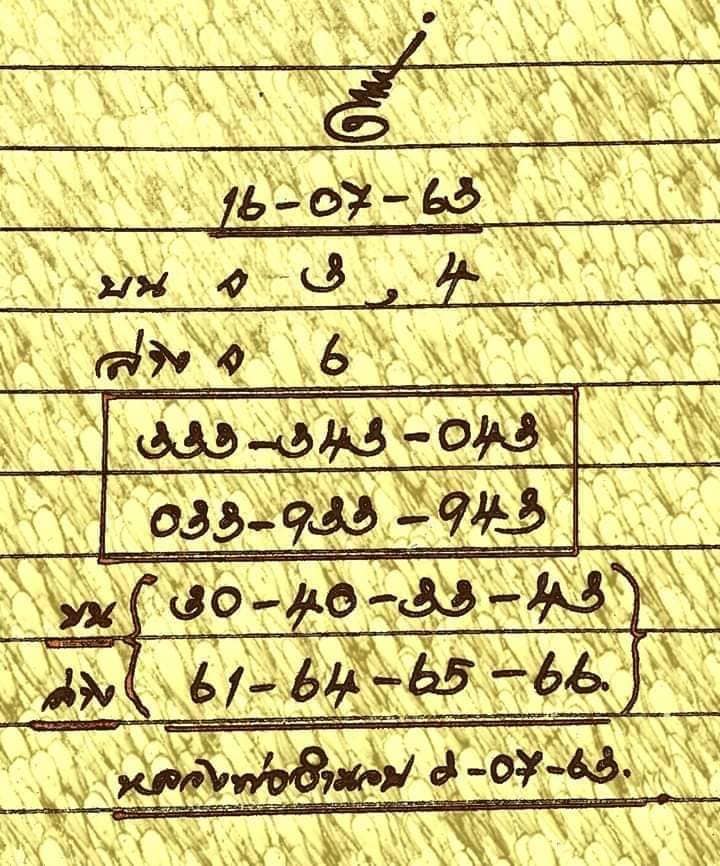 16-07-63
บน 3, 4
ล่าง 6
333-343-043
033-933-943
บน 30-40-33-43
ล่าง 61-64-65-66.
หลวงพ่อ -07-63.